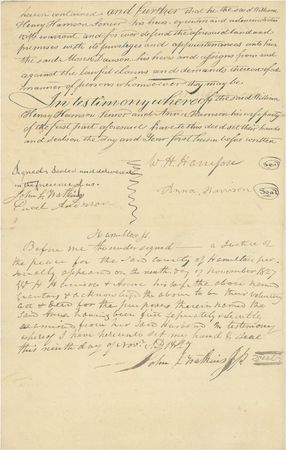 herein contained and further that he the said William
Henry Harrison Senior his heirs executors and administrators
will warrant and forever defend the aforesaid land and
premises with its privileges and appurtenances unto him
the said Moses Dawson his heirs and assigns from and
against the lawful claims and demands of all
manner of persons whomsoever they may be.
In testimony whereof the said William
Henry Harrison Senior and Anna Harrison his wife party
of the first part aforesaid have to this deed set their hands
and seals on the day and year first herein before written
Signed Sealed and delivered
in the presence of us.
W. H. Harrison
Seal
John L. Watkins
Anna Harrison
Seal
Anderson
Hamilton
Before me the undersigned a Justice of
the peace for the said county of Hamilton per-
sonally appeared on the ninth day of November 1827
W H Harrison & Anna his wife the above named
Grantors & acknowledged the above to be their voluntary
act & Deed for the purposes therein named the
Said Anna having been first separately
examined from her Said Husband In testimony
whereof I have hereunto set my hand & Seal
this ninth day of Novr AD 1827
John L Watkins JP
Seal